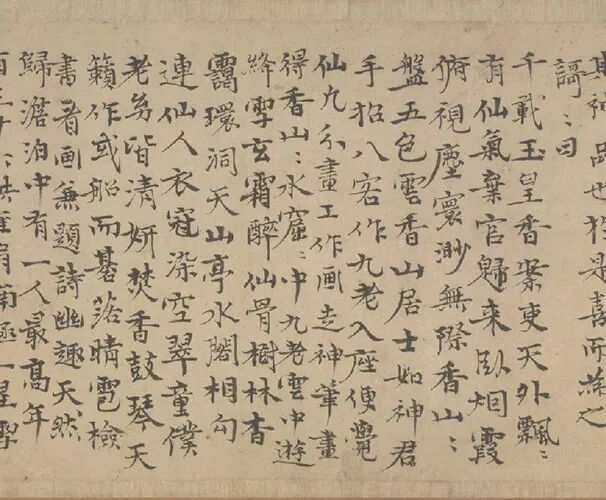 其神品也於是喜而為之
謌〻曰
千載玉皇香案吏天外飄〻
有仙氣棄官歸来臥烟霞
俯視塵寰渺無際香山〻
盤五色雲香山居士如神君
手招八客作九老入座便覺
仙凡分畫工作画走神筆畫
得香山〻水窟〻中九老雲中遊
絳雪玄霜醉仙骨樹林杳
靄環洞天山亭水閣相勾
連仙人衣冠染空翠童僕
老翁皆清妍焚香鼓琴天
籟作或船而碁落晴雹檢
書看画兼題詩幽趣天然
歸澹泊中有一人最高年
百三十洪崖肩南極一星